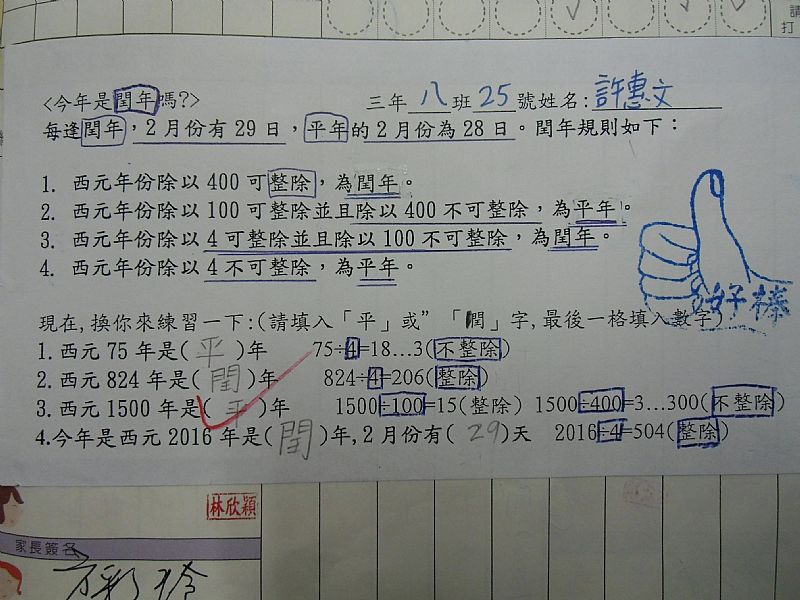 請
打
<今年是閏年嗎?> 三年 八 班 25 號姓名: 許惠文
每逢閏年,2月份有29日,平年的2月份為28日。閏年規則如下:
1. 西元年份除以 400 可整除,為閏年。
2. 西元年份除以 100 可整除並且除以 400 不可整除,為平年。
3. 西元年份除以 4 可整除並且除以 100 不可整除,為閏年。
4. 西元年份除以 4 不可整除,為平年。
好棒
現在,換你來練習一下:(請填入「平」或”「閏」字,最後一格填入數字)
1.西元 75 年是( 平 )年 75÷4=18…3(不整除)
2.西元 824 年是( 閏 )年 824÷4=206(整除)
3.西元 1500 年是( 平 )年 1500÷100=15(整除) 1500÷400=3…300(不整除)
4.今年是西元 2016 年是( 閏 )年,2月份有( 29 )天 2016÷4=504(整除)
林欣穎
家長簽名